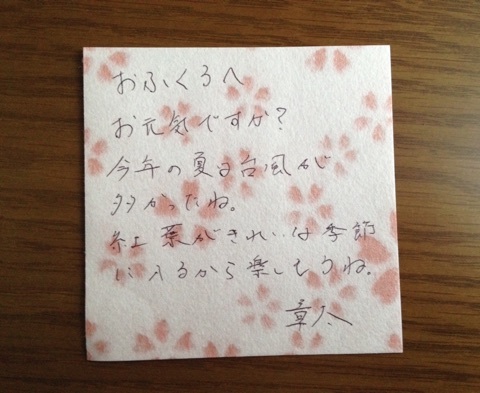 おふくろへ
お元気ですか?
今年の夏は台風が
多かったね。
紅葉がきれいな季節
に入るから楽しもうね。
章太